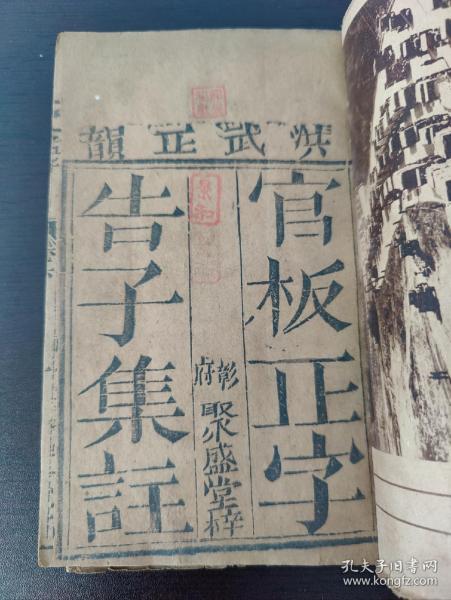 洪武正韻
官板正字
彰府聚盛堂梓
告子集註
孔夫子旧书网
www.kongfz.com